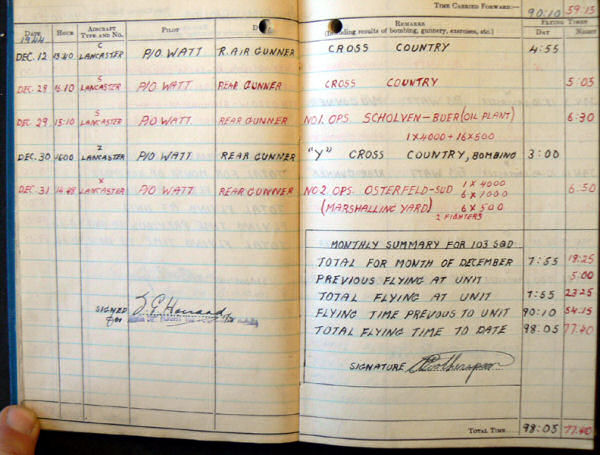 TIME CARRIED FORWARD:— 90:10 59:15
DATE HOUR AIRCRAFT TYPE AND NO. PILOT REMARKS (Including results of bombing, gunnery, exercises, etc.) FLYING TIMES DAY NIGHT
1944
DEC. 12 C LANCASTER P/O WATT R. AIR GUNNER CROSS COUNTRY 4:55
DEC. 28 16.10 S LANCASTER P/O WATT REAR GUNNER CROSS COUNTRY 5:05
DEC. 29 15:10 S LANCASTER P/O WATT REAR GUNNER NO 1. OPS. SCHOLVEN-BUER (OIL PLANT) 6:30
1 X 4000 + 16 X 500
DEC. 30 1600 Z LANCASTER P/O WATT REAR GUNNER "Y" CROSS COUNTRY, BOMBING 3:00
DEC. 31 14.48 X LANCASTER P/O WATT REAR GUNNER NO 2. OPS. OSTERFELD-SUD 1 X 4000 6:50
6 X 1000
(MARSHALLING YARD) 6 X 500
2 FIGHTERS
MONTHLY SUMMARY FOR 103 SQD
TOTAL FOR MONTH OF DECEMBER 7:55 18:25
PREVIOUS FLYING AT UNIT 5.00
TOTAL FLYING AT UNIT 7:55 23:25
FLYING TIME PREVOUS TO UNIT 90:10 54:15
TOTAL FLYING TIME TO DATE 98:05 77.40
SIGNED
for
SIGNATURE
TOTAL TIME 98:05 77:40